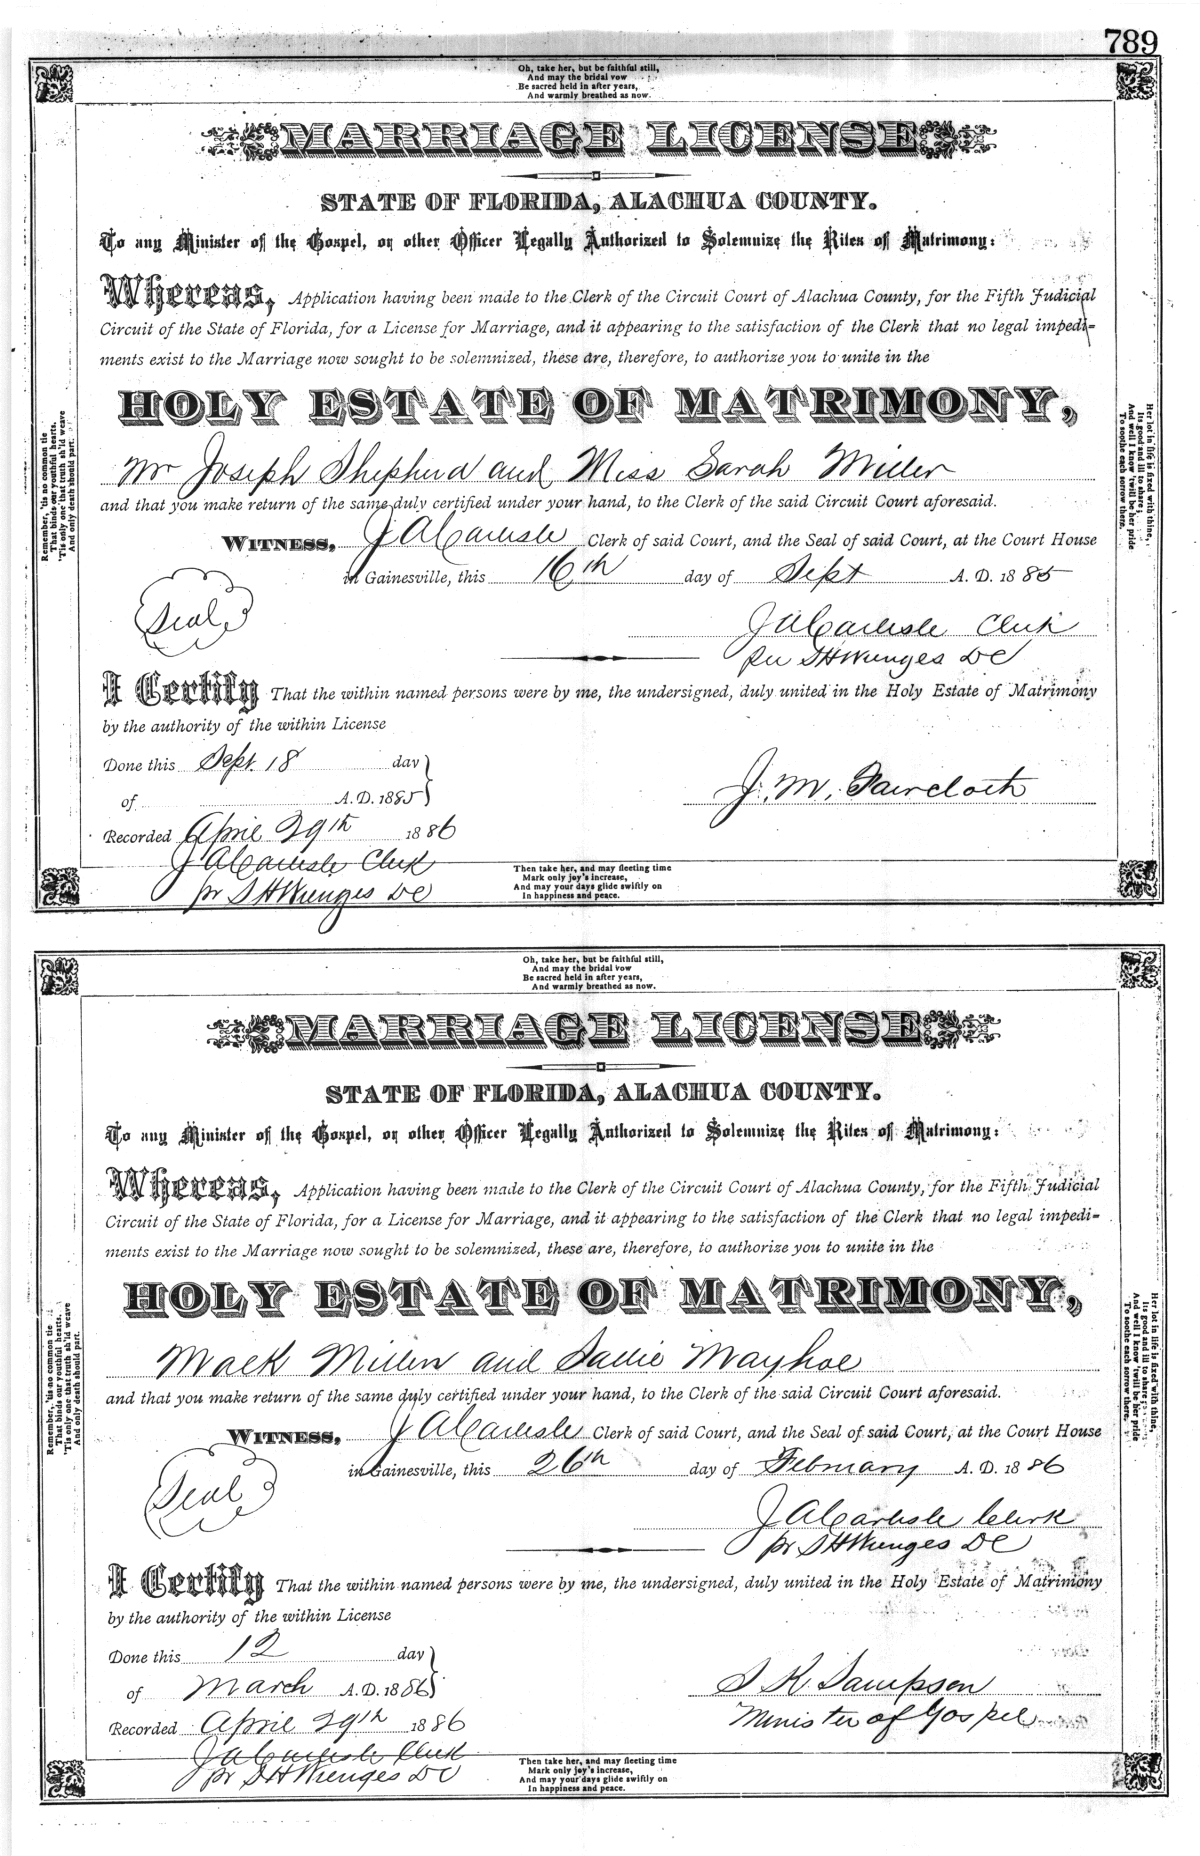 789
Oh, take her, but be faithful still,
And may the bridal vow
Be sacred held in after years,
And warmly breathed as now.
MARRIAGE LICENSE
STATE OF FLORIDA, ALACHUA COUNTY.
To any Minister of the Gospel, or other Officer Legally Authorized to Solemnize the Rites of Matrimony:
Whereas, Application having been made to the Clerk of the Circuit Court of Alachua County, for the Fifth Judicial
Circuit of the State of Florida, for a License for Marriage, and it appearing to the satisfaction of the Clerk that no legal impedi-
ments exist to the Marriage now sought to be solemnized, these are, therefore, to authorize you to unite in the
HOLY ESTATE OF MATRIMONY,
Mr Joseph Shepherd and Miss Sarah Miller
and that you make return of the same duly certified under your hand, to the Clerk of the said Circuit Court aforesaid.
WITNESS, J A Carlisle Clerk of said Court, and the Seal of said Court, at the Court House
in Gainesville, this 16th day of Sept A. D. 1885
Seal
J A Carlisle Clerk
per S H Wienges DC
I Certify That the within named persons were by me, the undersigned, duly united in the Holy Estate of Matrimony
by the authority of the within License
Done this Sept. 18 day
of A.D. 1885
J. M. Faircloth
Recorded April 29th 1886
J A Carlisle Clerk
pr S H Wienges DC
Remember, 'tis no common tie
That binds our youthful hearts,
'Tis only one that truth sh'ld weave
And only death should part.
Her lot in life is fixed with thine,
Its good and ill to share;
And well I know 'twill be her pride
To soothe each sorrow there.
Then take her, and may fleeting time
Mark only joy's increase,
And may your days glide swiftly on
In happiness and peace.
Oh, take her, but be faithful still,
And may the bridal vow
Be sacred held in after years,
And warmly breathed as now.
MARRIAGE LICENSE
STATE OF FLORIDA, ALACHUA COUNTY.
To any Minister of the Gospel, or other Officer Legally Authorized to Solemnize the Rites of Matrimony:
Whereas, Application having been made to the Clerk of the Circuit Court of Alachua County, for the Fifth Judicial
Circuit of the State of Florida, for a License for Marriage, and it appearing to the satisfaction of the Clerk that no legal impedi-
ments exist to the Marriage now sought to be solemnized, these are, therefore, to authorize you to unite in the
HOLY ESTATE OF MATRIMONY,
Mack Miller and Sallie Mayhoe
and that you make return of the same duly certified under your hand, to the Clerk of the said Circuit Court aforesaid.
WITNESS, J A Carlisle Clerk of said Court, and the Seal of said Court, at the Court House
in Gainesville, this 26th day of February A. D. 1886
Seal
J A Carlisle Clerk
pr S H Wienges DC
I Certify That the within named persons were by me, the undersigned, duly united in the Holy Estate of Matrimony
by the authority of the within License
Done this 12 day
of March A.D. 1886
S K Sampson
Minister of Gospel
Recorded April 29th 1886
J A Carlisle Clerk
pr S H Wienges DC
Remember, 'tis no common tie
That binds our youthful hearts,
'Tis only one that truth sh'ld weave
And only death should part.
Her lot in life is fixed with thine,
Its good and ill to share;
And well I know 'twill be her pride
To soothe each sorrow there.
Then take her, and may fleeting time
Mark only joy's increase,
And may your days glide swiftly on
In happiness and peace.